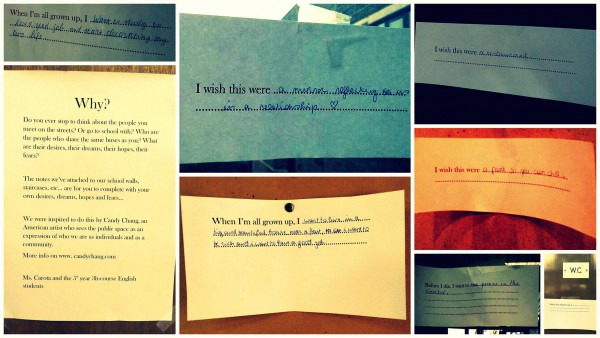 When I'm all grown up, I
good job and start discovering my
own life
Why?
Do you ever stop to think about the people you
meet on the streets? Or go to school with? Who are
the people who share the same buses as you? What
are their desires, their dreams, their hopes, their
fears?
The notes we've attached to our school walls,
staircases, etc... are for you to complete with your
own desires, dreams, hopes and fears...
We were inspired to do this by Candy Chang, an
American artist who sees the public space as an
expression of who we are as individuals and as a
community.
More info on www. candychang.com
Ms. Carota and the 5° year 3h/course English
students
I wish this were a mirror reflecting to us
in a relationship ♡
When I'm all grown up, I want to live in a
big and beautiful house near a
be rich and I want to have a good job
I wish this were a restaurant
I wish this were a park so you can
Before I die, I want to
WC